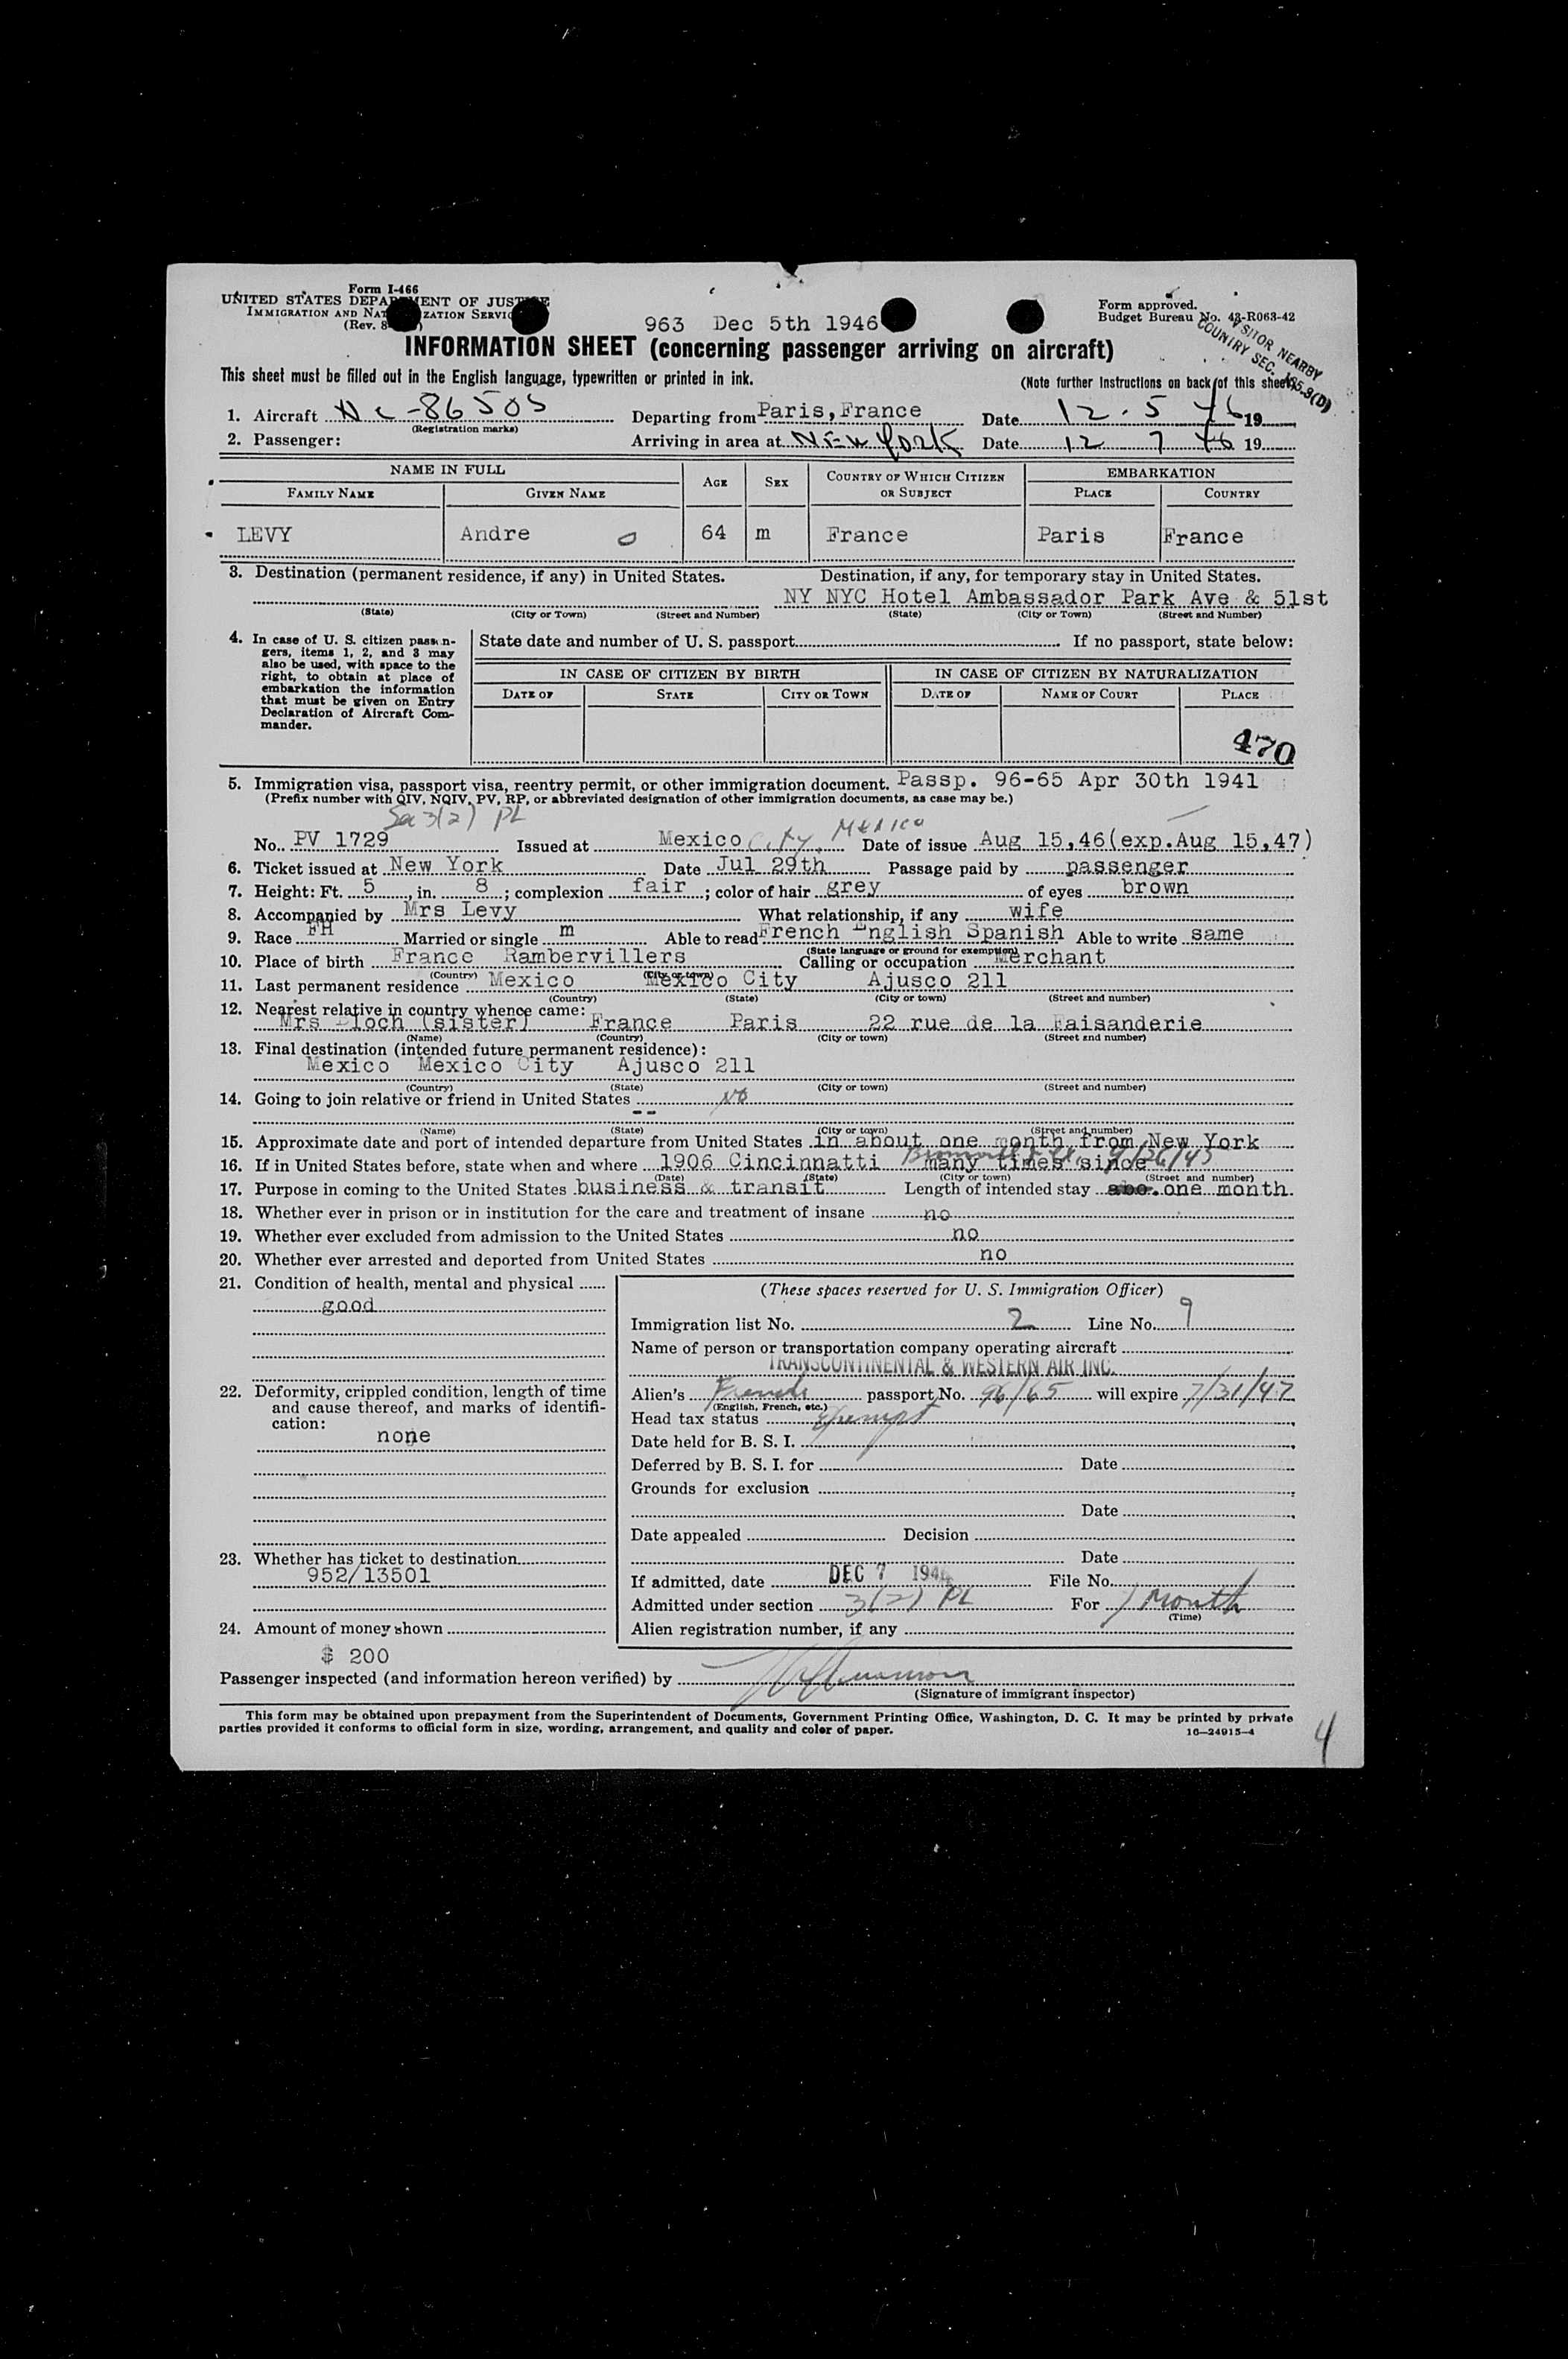 Form I-466
UNITED STATES DEPARTMENT OF JUSTICE
IMMIGRATION AND NATURALIZATION SERVICE
(Rev. 8
Form approved.
Budget Bureau No. 43-R063-42
VISITOR NEARBY
COUNTRY SEC. 165.3(D)
963 Dec 5th 1946
INFORMATION SHEET (concerning passenger arriving on aircraft)
This sheet must be filled out in the English language, typewritten or printed in ink. (Note further instructions on back of this sheet)
1. Aircraft NC-86505 Departing from Paris, France Date 12.5 46 19
(Registration marks)
2. Passenger: Arriving in area at NEW York Date 12 7 46 19
NAME IN FULL AGE SEX COUNTRY OF WHICH CITIZEN OR SUBJECT EMBARKATION
FAMILY NAME GIVEN NAME PLACE COUNTRY
LEVY Andre 64 m France Paris France
3. Destination (permanent residence, if any) in United States. Destination, if any, for temporary stay in United States.
NY NYC Hotel Ambassador Park Ave & 51st
(State) (City or Town) (Street and Number) (State) (City or Town) (Street and Number)
4. In case of U. S. citizen passengers, items 1, 2, and 3 may also be used, with space to the right, to obtain at place of embarkation the information that must be given on Entry Declaration of Aircraft Commander.
State date and number of U. S. passport If no passport, state below:
IN CASE OF CITIZEN BY BIRTH IN CASE OF CITIZEN BY NATURALIZATION
DATE OF STATE CITY OR TOWN DATE OF NAME OF COURT PLACE
470
5. Immigration visa, passport visa, reentry permit, or other immigration document. Passp. 96-65 Apr 30th 1941
(Prefix number with QIV, NQIV, PV, RP, or abbreviated designation of other immigration documents, as case may be.)
Sec 3(2) PL
No. PV 1729 Issued at Mexico City, MEXICO Date of issue Aug 15,46(exp.Aug 15,47)
6. Ticket issued at New York Date Jul 29th Passage paid by passenger
7. Height: Ft. 5, in. 8; complexion fair; color of hair grey of eyes brown
8. Accompanied by Mrs Levy What relationship, if any wife
9. Race FH Married or single m Able to read French English Spanish Able to write same
(State language or ground for exemption)
10. Place of birth France Rambervillers Calling or occupation Merchant
(Country) (City or town)
11. Last permanent residence Mexico Mexico City Ajusco 211
(Country) (State) (City or town) (Street and number)
12. Nearest relative in country whence came:
Mrs Bloch (sister) France Paris 22 rue de la Faisanderie
(Name) (Country) (City or town) (Street and number)
13. Final destination (intended future permanent residence):
Mexico Mexico City Ajusco 211
(Country) (State) (City or town) (Street and number)
14. Going to join relative or friend in United States -- No
(Name) (State) (City or town) (Street and number)
15. Approximate date and port of intended departure from United States in about one month from New York
16. If in United States before, state when and where 1906 Cincinnatti many times since
(Date) (State) (City or town) (Street and number)
17. Purpose in coming to the United States business & transit Length of intended stay abo. one month
18. Whether ever in prison or in institution for the care and treatment of insane no
19. Whether ever excluded from admission to the United States no
20. Whether ever arrested and deported from United States no
21. Condition of health, mental and physical
good
22. Deformity, crippled condition, length of time and cause thereof, and marks of identification:
none
23. Whether has ticket to destination
952/13501
24. Amount of money shown
$ 200
(These spaces reserved for U. S. Immigration Officer)
Immigration list No. 2 Line No. 9
Name of person or transportation company operating aircraft
TRANSCONTINENTAL & WESTERN AIR INC.
Alien's French passport No. 96/65 will expire 7/31/47
(English, French, etc.)
Head tax status Exempt
Date held for B. S. I.
Deferred by B. S. I. for Date
Grounds for exclusion
Date
Date appealed Decision
Date
If admitted, date DEC 7 1946 File No.
Admitted under section 3(2) PL For 1 Month
(Time)
Alien registration number, if any
Passenger inspected (and information hereon verified) by
(Signature of immigrant inspector)
This form may be obtained upon prepayment from the Superintendent of Documents, Government Printing Office, Washington, D. C. It may be printed by private
parties provided it conforms to official form in size, wording, arrangement, and quality and color of paper. 16—24915-4
4